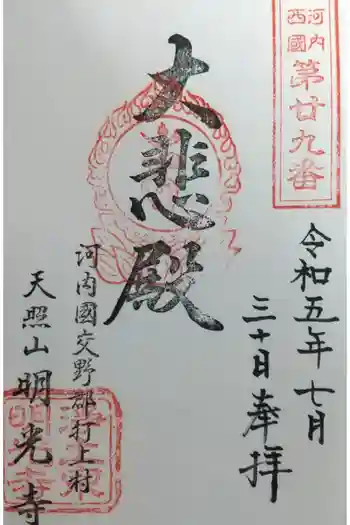 河内
西國
第廿九番
令和五年七月
三十日奉拝
大悲殿
河内國交野郡打上村
天照山明光寺